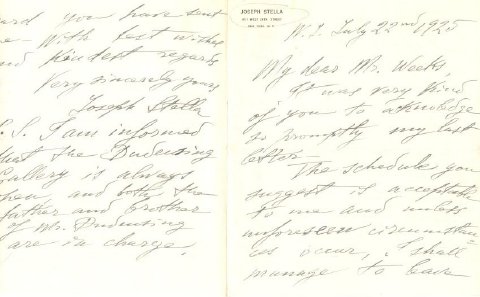 JOSEPH STELLA
N.Y. July 22nd 1925
My dear Mr. Weeks,
It was very kind
of you to acknowledge
so promptly my last
letter—
The schedule you
suggest is acceptable
to me and unless
unforeseen circumstan
ces occur, I shall
manage to have
you have sent
me with best wishes
and kindest regards
Very sincerely yours
Joseph Stella
P.S. I am informed
that the Dudensing
Gallery is always
open and both the
father and brother
of Mr. Dudensing
are in charge.